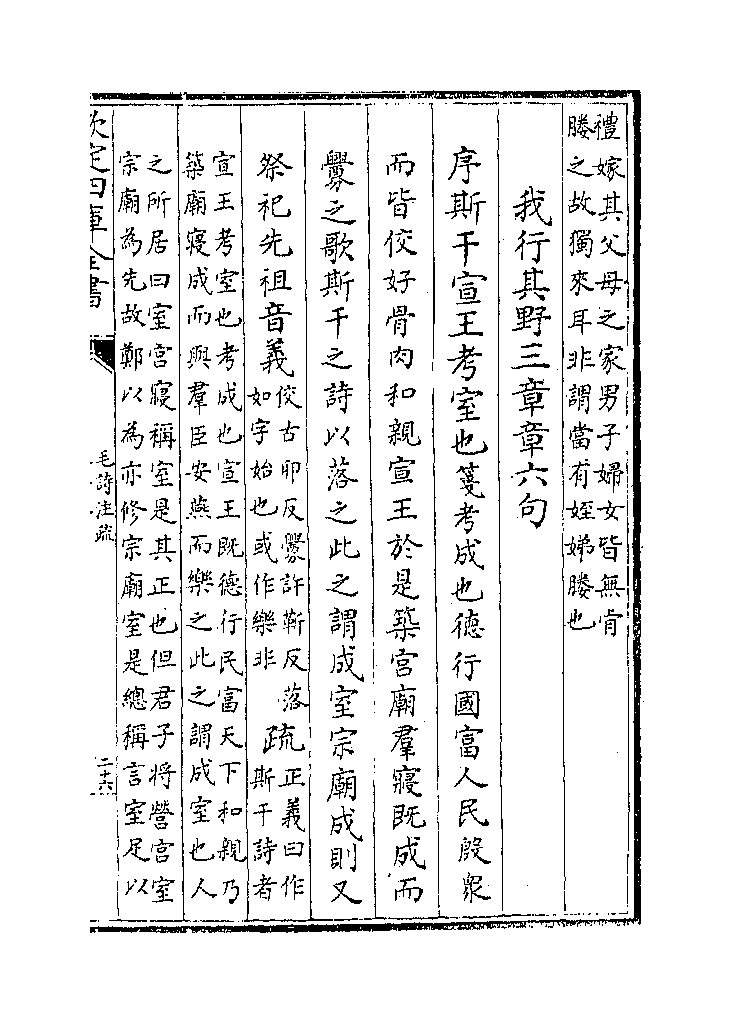 禮嫁其父母之家男子婦女皆無肯
媵之故獨來耳非謂當有姪娣媵也
我行其野三章章六句
序斯干宣王考室也箋考成也徳行國富人民殷衆
而皆佼好骨肉和親宣王於是築宫廟羣寢既成而
釁之歌斯干之詩以落之此之謂成室宗廟成則又
祭祀先祖音義佼古卯反釁許靳反落
如字始也或作樂非
疏正義曰作
斯干詩者
宣王考室也考成也宣王既徳行民富天下和親乃
築廟寢成而興羣臣安燕而樂之此之謂成室也人
之所居曰室宫寢稱室是其正也但君子將營宫室
宗廟為先故鄭以為亦修宗廟室是總稱言室足以
欽定四庫全書
毛詩注疏
二十六